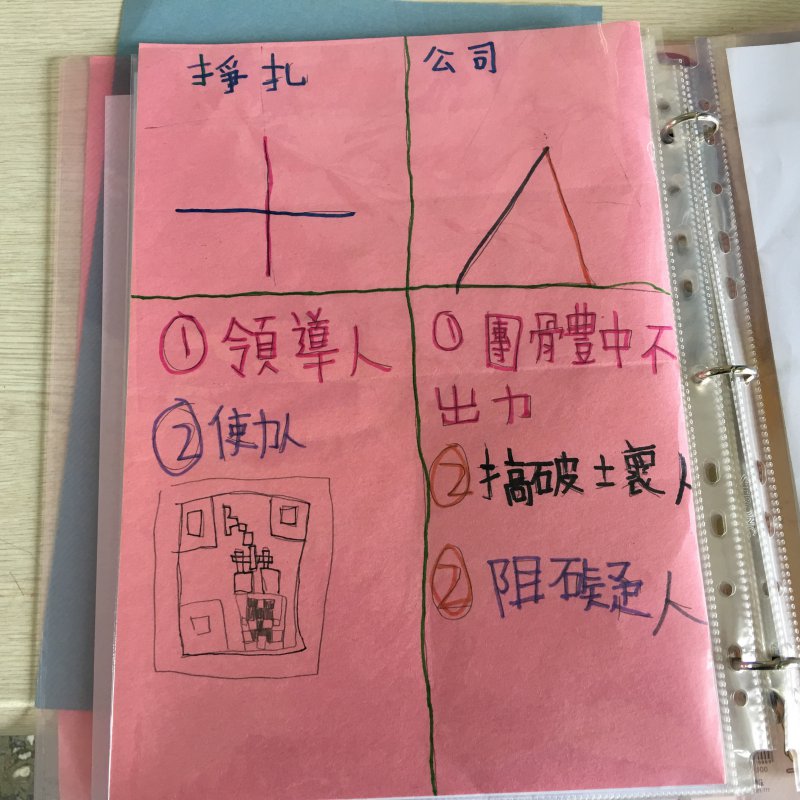 掙扎
公司
①領導人
②使力人
①團體中不
出力
②搞破壞人
②阻礙人